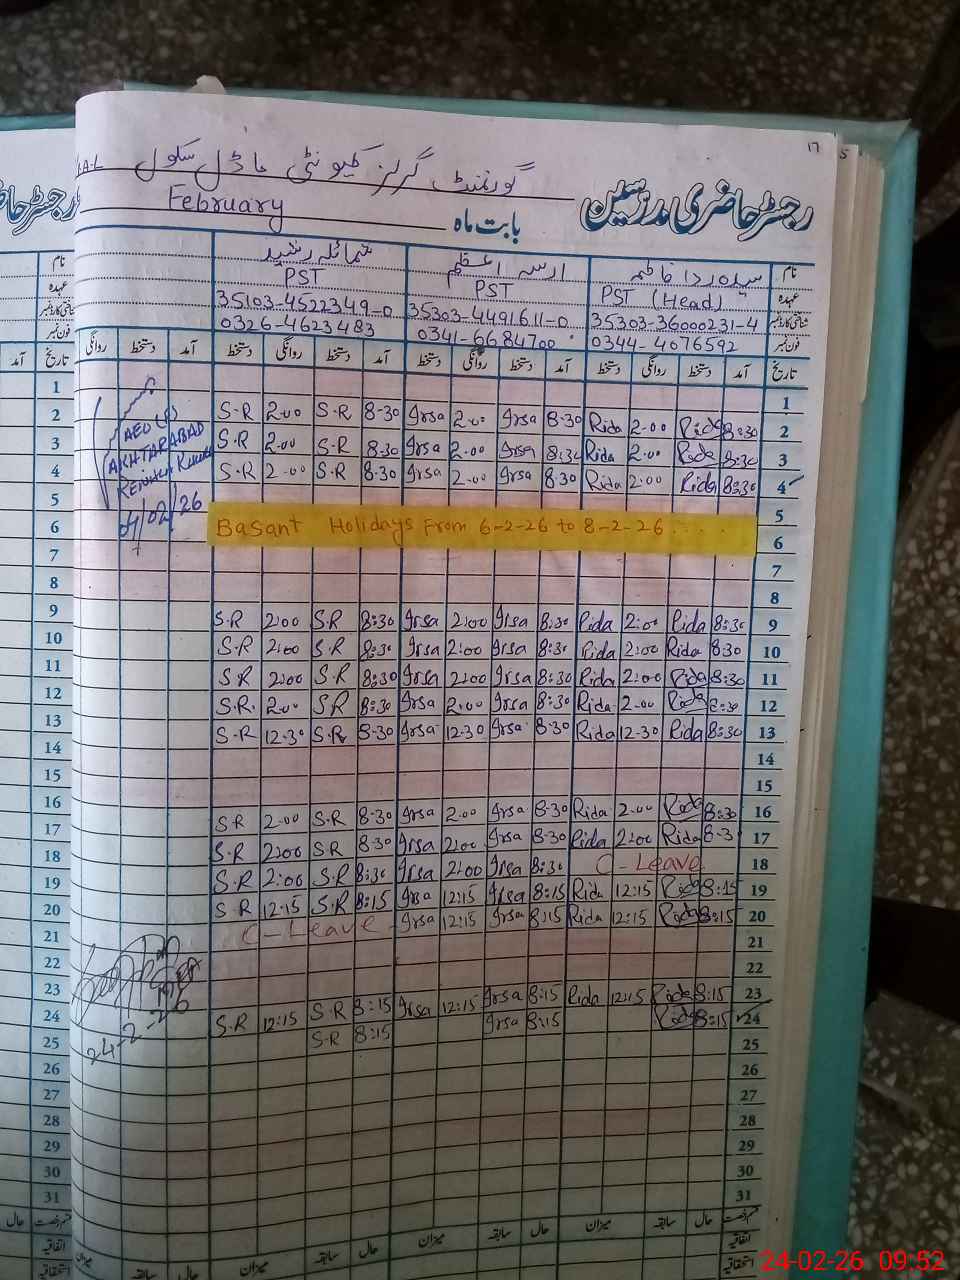 17
رجسٹر حاضری مدرسین
گورنمنٹ گرلز کمیونٹی ماڈل سکول
بابت ماہ February
نام سیدہ ردا فاطمہ ارسہ اعظم شمائلہ رشید نام
عہدہ PST (Head) PST PST عہدہ
شناختی کارڈ نمبر 35303-36000231-4 35303-4491611-0 35103-4522349-0
فون نمبر 0344-4076592 0341-6684700 0326-4623483 فون نمبر
تاریخ آمد دستخط روانگی دستخط آمد دستخط روانگی دستخط آمد دستخط روانگی دستخط آمد دستخط روانگی تاریخ آمد
1 1
2 S.R 2.00 S.R 8-30 Irsa 2.00 Irsa 8-30 Rida 2.00 Rida 8:30 2
3 S.R 2.00 S.R 8.30 Irsa 2.00 Irsa 8:30 Rida 2.00 Rida 8:30 3
4 S.R 2.00 S.R 8.30 Irsa 2.00 Irsa 8.30 Rida 2:00 Rida 8:30 4
AEO
AKHTARABAD
04/02/26
5 5
6 Basant Holidays From 6-2-26 to 8-2-26 6
7 7
8 8
9 S.R 2:00 S.R 8:30 Irsa 2:00 Irsa 8:30 Rida 2:00 Rida 8:30 9
10 S.R 2:00 S.R 8:30 Irsa 2:00 Irsa 8:30 Rida 2:00 Rida 8:30 10
11 S.R 2:00 S.R 8:30 Irsa 2:00 Irsa 8:30 Rida 2:00 Rida 8:30 11
12 S.R. 2.00 S.R 8:30 Irsa 2.00 Irsa 8:30 Rida 2-00 Rida 8:30 12
13 S-R 12-30 S.R 8-30 Irsa 12-30 Irsa 8-30 Rida 12-30 Rida 8:30 13
14 14
15 15
16 S.R 2.00 S.R 8-30 Irsa 2.00 Irsa 8-30 Rida 2.00 Rida 8:30 16
17 S.R 2:00 S.R 8-30 Irsa 2:00 Irsa 8-30 Rida 2:00 Rida 8-3 17
18 S.R 2:00 S.R 8:30 Irsa 2:00 Irsa 8:30 C-Leave 18
19 S.R 12:15 S.R 8:15 Irsa 12:15 Irsa 8:15 Rida 12:15 Rida 8:15 19
20 C-Leave Irsa 12:15 Irsa 8:15 Rida 12:15 Rida 8:15 20
21 21
22 22
23 S.R 12:15 S.R 8:15 Irsa 12:15 Irsa 8:15 Rida 12:15 Rida 8:15 23
24 S.R 8:15 Irsa 8:15 Rida 8:15 24
24-2-26
25 25
26 26
27 27
28 28
29 29
30 30
31 31
قسم رخصت حال سابقہ میزان حال سابقہ میزان حال سابقہ میزان حال سابقہ میزان قسم رخصت حال
اتفاقیہ اتفاقیہ
استحقاقیہ استحقاقیہ
24-02-26 09:52